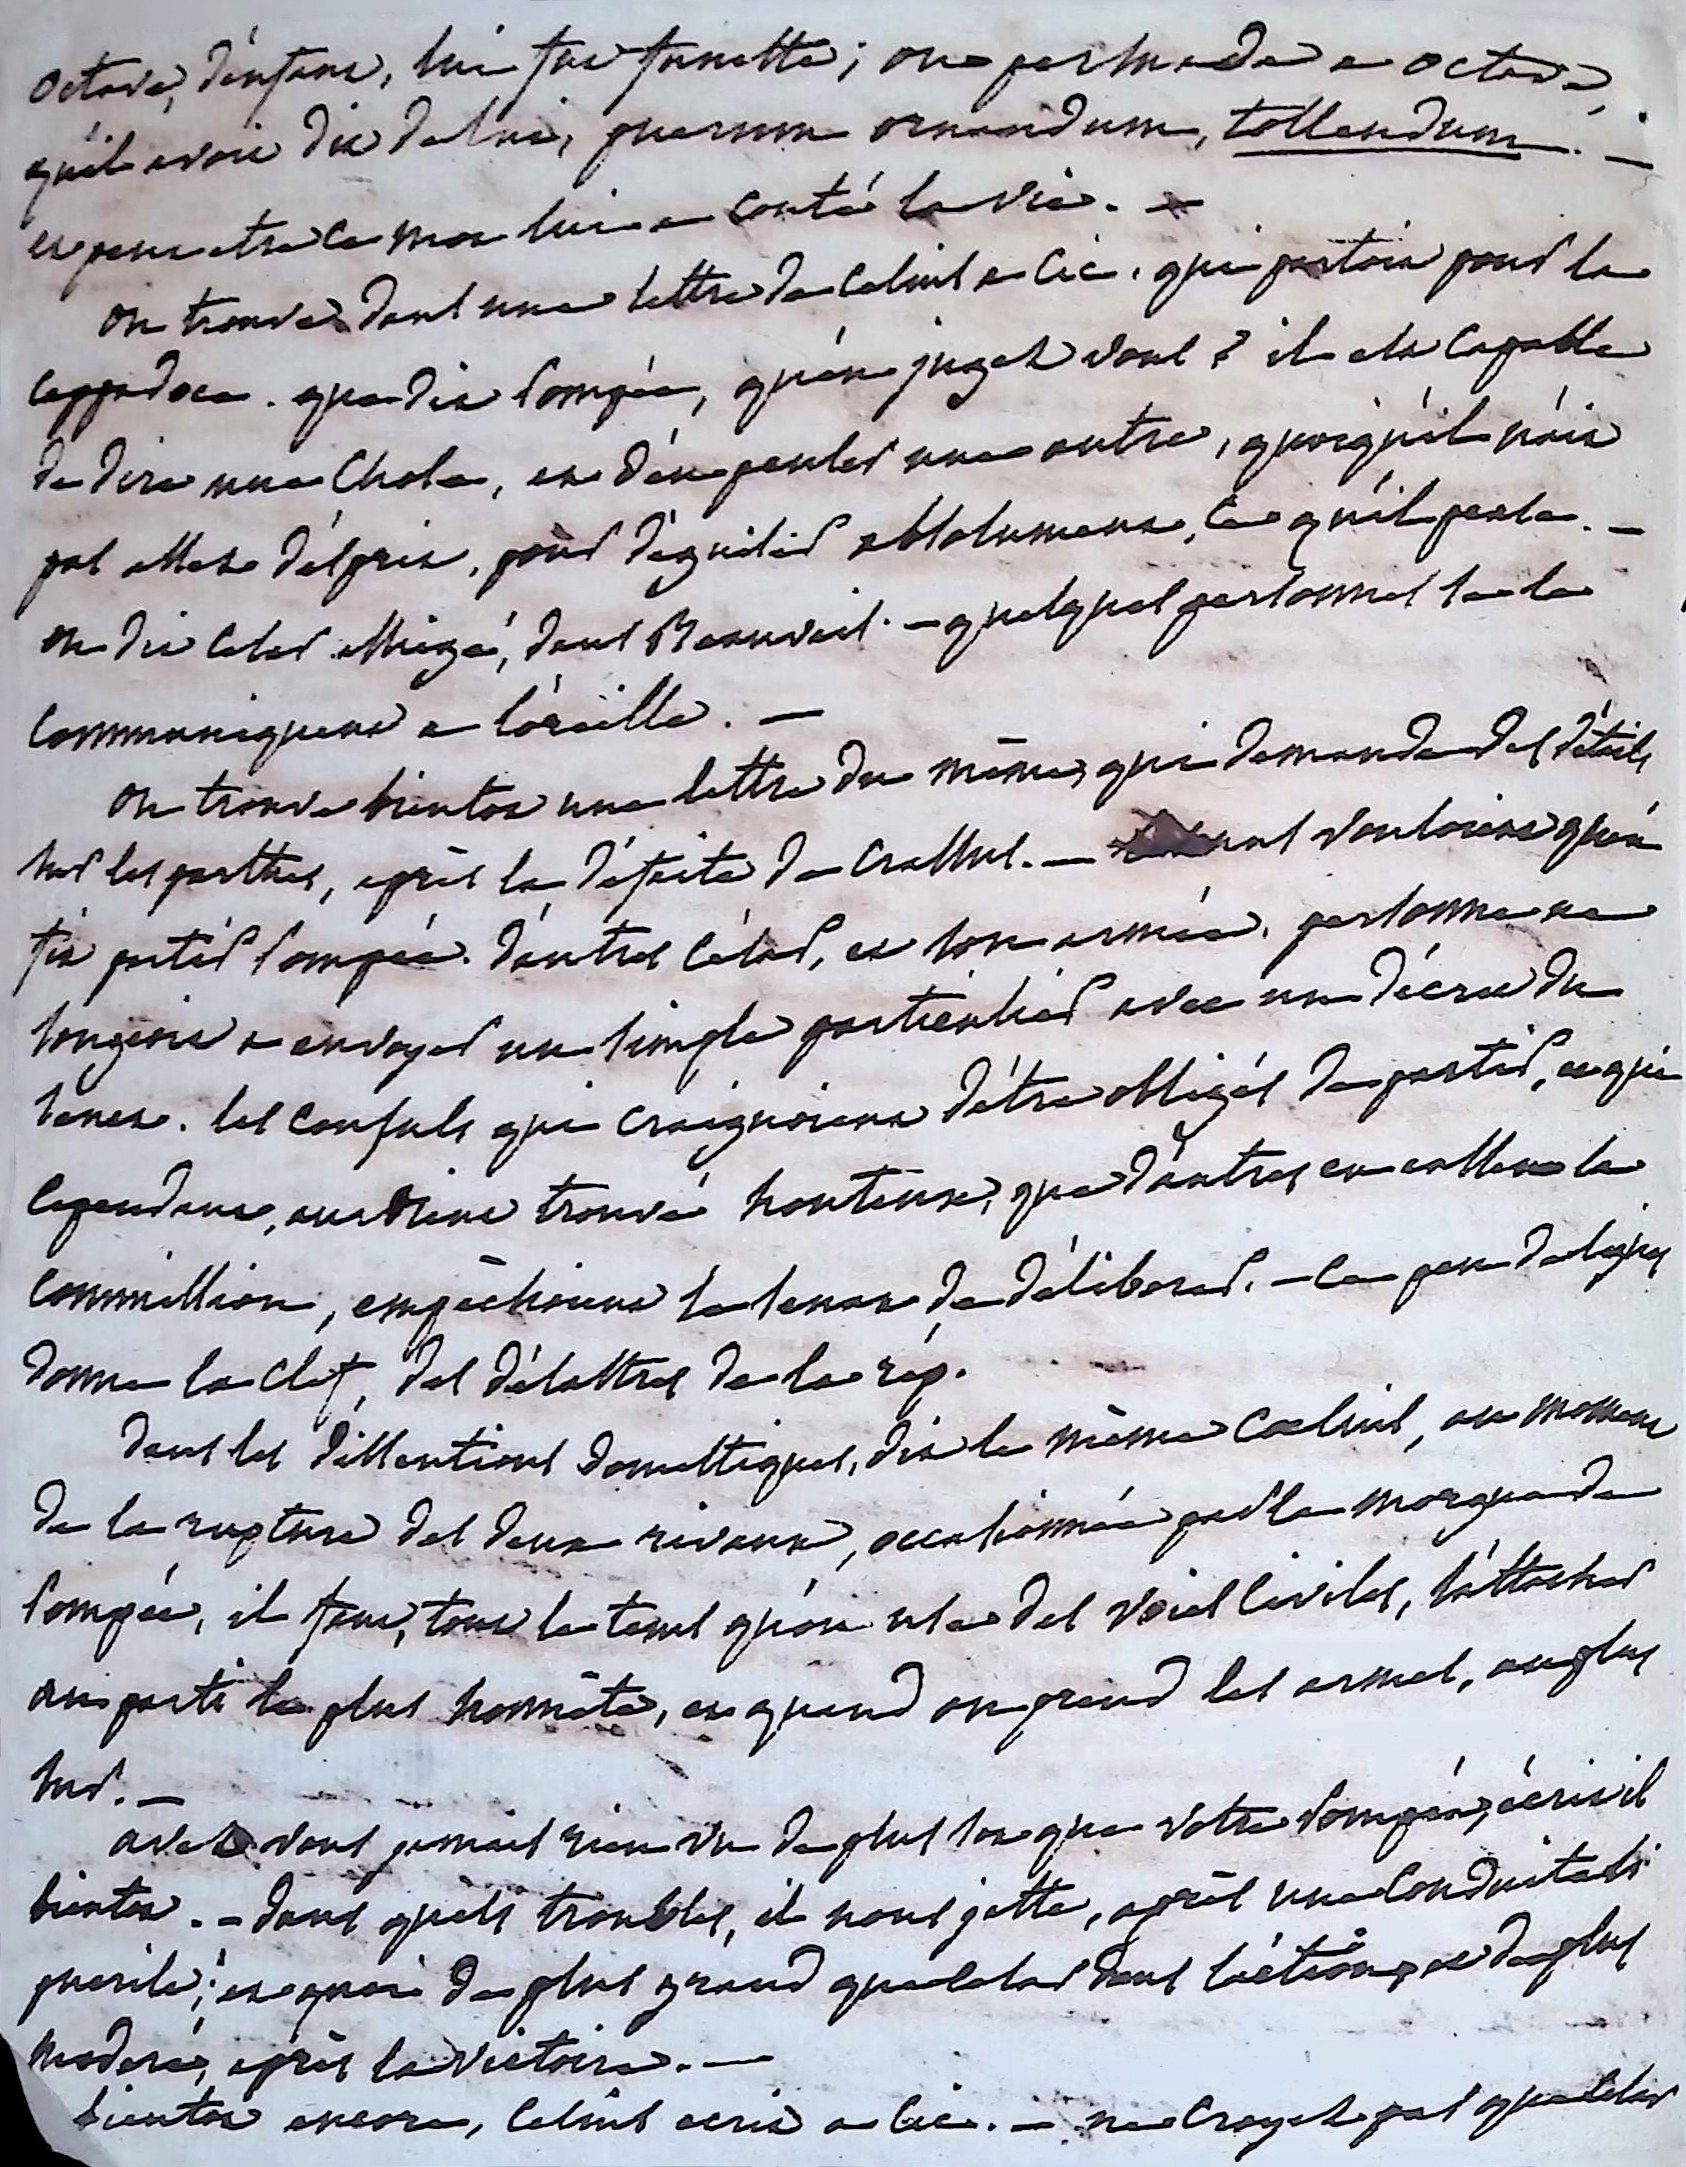 octave, d'enfans, lui fut funeste ; on persuada a octave,
qu'il avoit dit de lui, puerum ornandum, tollendum. —
et peut etre ce mot lui a couté la vie. —
on trouve dans une lettre de Celius a Cic. qui partoit pour la
Cappadoce. que dit Pompée, qu'en jugez vous ? il est capable
de dire une chose, et d'en penser une autre, quoiqu'il n'ait
pas assez d'esprit, pour déguiser absolument, ce qu'il pense. —
on dit César assiégé, dans Beauvais. — quelques personnes se le
communiquent a l'oreille. —
on trouve bientot une lettre du même, qui demande des détails
sur les parthes, après la défaite de Crassus. — uns vouloient qu'on
fit partir Pompée. d'autres César, et son armée. personne ne
songeoit a envoyer un simple particulier avec un décret du
senat. les consuls qui craignoient d'être obligés de partir, et qui
cependant, auroient trouvé honteux, que d'autres en eussent la
commission, empêchoient le senat de déliberer. — ce peu de lignes
donne la clef, des désastres de la rép.
dans les dissentions domestiques, dit le même Cœlius, au moment
de la rupture des deux rivaux, occasionnée par la morgue de
Pompée, il faut, tout le tems qu'on use des voies civiles, s'attacher
au parti le plus honnête, et quand on prend les armes, au plus
sur. —
avez vous jamais rien vu de plus sot que votre Pompée, écrit il
bientot. — dans quels troubles, il nous jette, après une conduite si
puerile ; et quoi de plus grand que César dans l'action, et de plus
moderé, après la victoire. —
bientot encore, Celius ecrit a Cic. — ne croyez pas que César